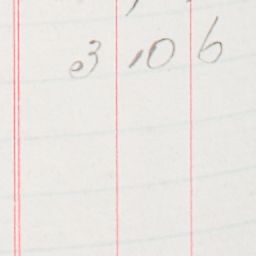 3 10 6